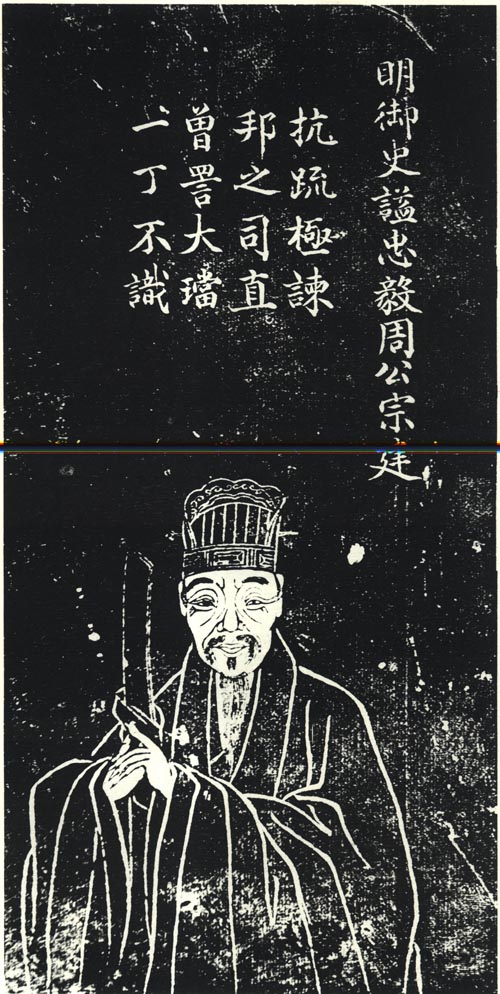 明御史謚忠毅周公宗建
抗疏極諫
邦之司直
曾詈大璫
一丁不識